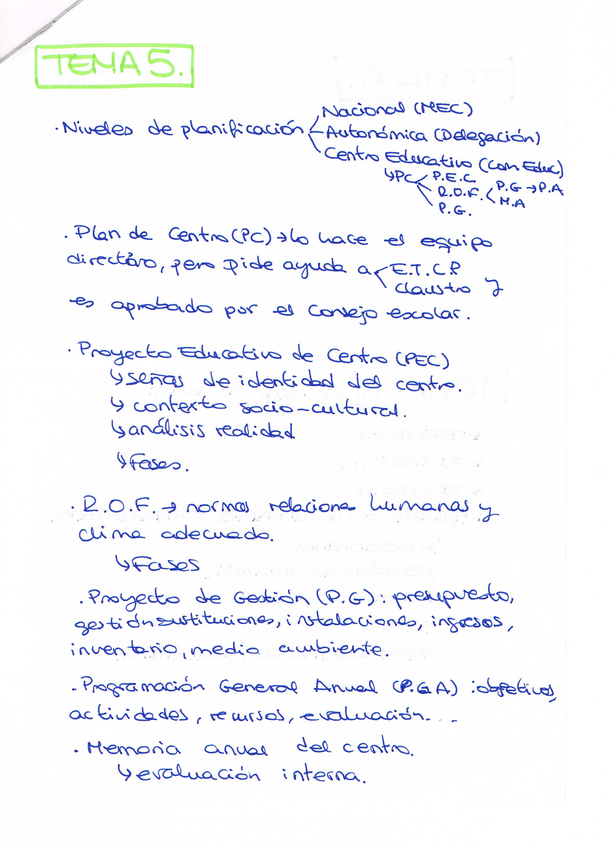 TEMA 5.
Nacional (MEC)
· Niveles de planificación Autonómica (Delegación)
Centro Educativo (Com Educ)
↳ PC P.E.C.
R.O.F. P.G → P.A
M.A
P.G.
· Plan de Centro (PC) → lo hace el equipo
directivo, pero pide ayuda a E.T.C.P
claustro y
es aprobado por el Consejo escolar.
· Proyecto Educativo de Centro (PEC)
↳ señas de identidad del centro.
↳ contexto socio-cultural.
↳ análisis realidad
↳ Fases.
· R.O.F. → normas relaciones humanas y
clima adecuado.
↳ Fases
· Proyecto de Gestión (P.G): presupuesto,
gestión sustituciones, instalaciones, ingresos,
inventario, medio ambiente.
· Programación General Anual (P.G.A) : objetivos,
actividades, recursos, evaluación...
· Memoria anual del centro.
↳ evaluación interna.